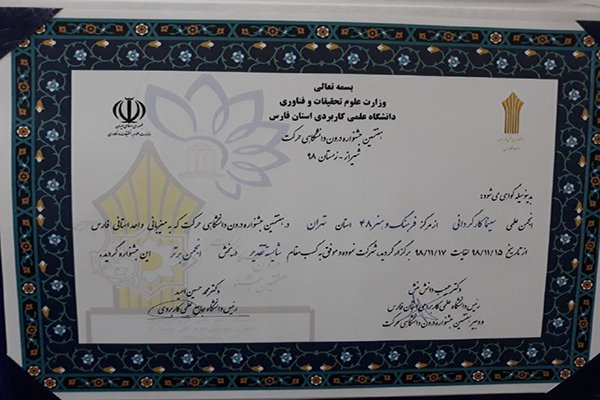 بسمه تعالی
وزارت علوم تحقیقات و فناوری
دانشگاه علمی کاربردی استان فارس
هفتمین جشنواره درون دانشگاهی حرکت
شیراز - زمستان ۹۸
بدینوسیله گواهی می شود:
انجمن علمی سینما کارگردانی از مرکز فرهنگ و هنر ۴۸ استان تهران در هفتمین جشنواره درون دانشگاهی حرکت که به میزبانی واحد استانی فارس
از تاریخ ۹۸/۱۱/۱۵ لغایت ۹۸/۱۱/۱۷ برگزار گردید، شرکت نموده و موفق به کسب مقام شایسته تقدیر در بخش انجمن برتر این جشنواره گردید.
دکتر حبیب دانش منش
رئیس دانشگاه علمی کاربردی استان فارس
و دبیر هفتمین جشنواره درون دانشگاهی حرکت
دکتر محمد حسین امید
رئیس دانشگاه جامع علمی کاربردی